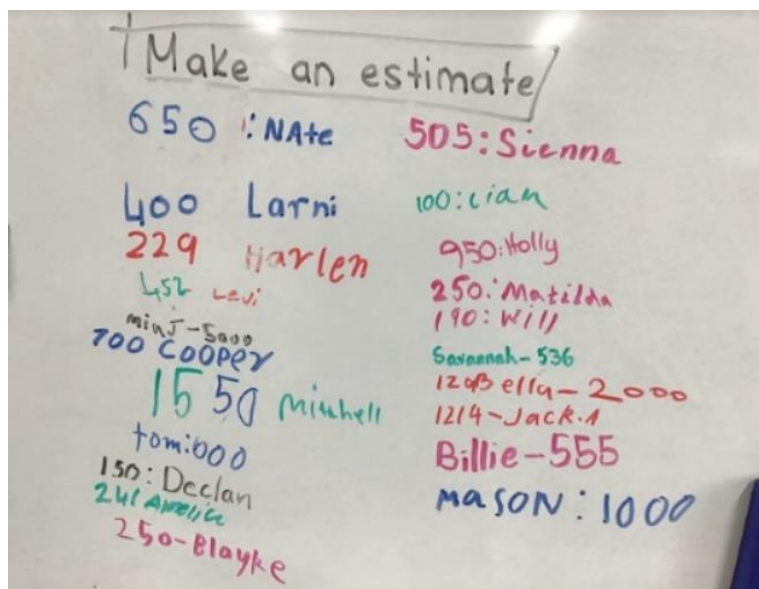 Make an estimate
650 : NAte
400 Larni
229 Harlen
452 Levi
minJ-5000
700 COOPer
1550 Mitchell
tom:600
150: Declan
241 Amelia
250-Blayke
505: Sienna
100: cian
950: Holly
250: Matilda
190: Will
Savannah-536
Bella-2000
1214-Jack.A
Billie-555
MaSON: 1000